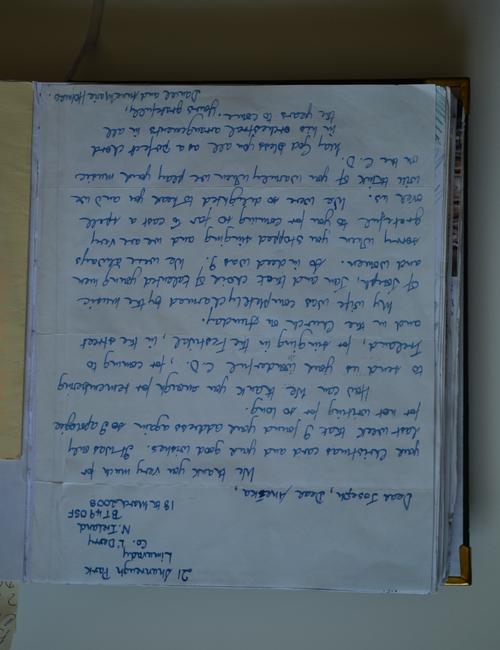 21 Shanreagh Park
Limavady
Co. L'Derry
N. Ireland
BT49 0SF
18th March 2008
Dear Joseph, Dear Anežka,
We thank you very much for
your Christmas card and your good wishes. It was only
last week that I found your address again so I apologise
for not writing for so long.
How can we thank you enough for remembering
to send us your wonderful C.D., for coming to
Ireland, for singing in the Festival, in the street
and in the Church on Sunday.
My wife was completely charmed by the music
of Joseph, Jan, and that choir of talented young men
and women. So indeed was I. We were always
sorry when you stopped singing and we are very
grateful to you for coming so far to cast a spell
over us. We were so delighted to hear you and we
will think of you warmly when we play your music
on the C.D.
May God bless you all as a perfect chord
in his orchestral arrangements in all
the years to come.
Yours gratefully,
Daniel and Anne Marie Holmes.